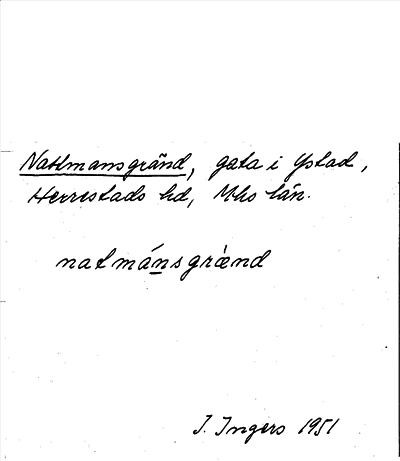 Nattmansgränd, gata i Ystad,
Herrestads hd, Mhs län.
natmánsgrǽnd
I. Ingers 1951